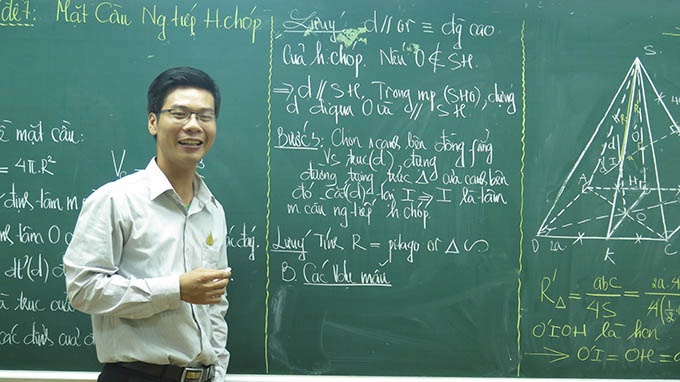 đề 7: Mặt Cầu Ng tiếp H.chóp
mặt cầu:
= 4π.R²
định tâm m
tâm O
dt'(d)
trục của
các đỉnh của đ
Lưu ý: d // or ≡ đg cao
của h.chóp. Nếu O ∉ SH.
⇒ d // SH. Trong mp (SHO), dựng
d đi qua O và // SH.
Bước 3: Chọn 1 cạnh bên đồng phẳng
Vs trục (d), dựng
đường trung trực Δ của cạnh bên
đó cắt (d) tại I ⇒ I là tâm
m cầu ng tiếp h chóp.
Lưu ý Tính R = pitago or Δ ∽
B. Các Vdụ mẫu
đáy.
S
I
A
H
O
D
2a
K
C
R'Δ = abc / 4S = 2a.
O'IOH là hcn
→ O'I = OH =